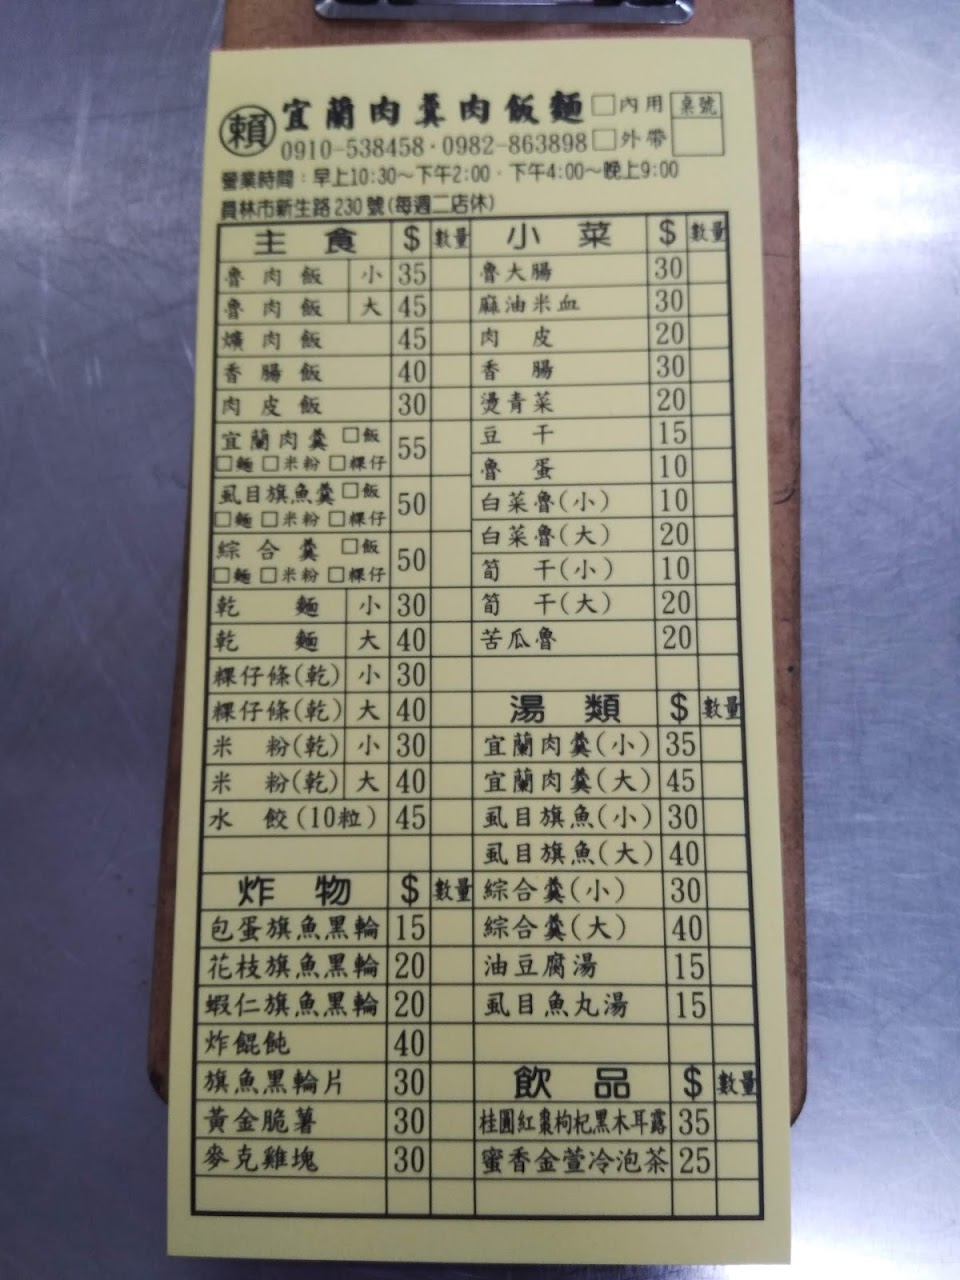 賴 宜蘭肉羹肉飯麵 □內用 桌號
0910-538458·0982-863898 □外帶
營業時間:早上10:30~下午2:00·下午4:00~晚上9:00
員林市新生路230號(每週二店休)
主食 $ 數量
魯肉飯 小 35
魯肉飯 大 45
爌肉飯 45
香腸飯 40
肉皮飯 30
宜蘭肉羹 □飯 55
□麵 □米粉 □粿仔
虱目旗魚羹 □飯 50
□麵 □米粉 □粿仔
綜合羹 □飯 50
□麵 □米粉 □粿仔
乾麵 小 30
乾麵 大 40
粿仔條(乾) 小 30
粿仔條(乾) 大 40
米粉(乾) 小 30
米粉(乾) 大 40
水餃(10粒) 45
炸物 $ 數量
包蛋旗魚黑輪 15
花枝旗魚黑輪 20
蝦仁旗魚黑輪 20
炸餛飩 40
旗魚黑輪片 30
黃金脆薯 30
麥克雞塊 30
小菜 $ 數量
魯大腸 30
麻油米血 30
肉皮 20
香腸 30
燙青菜 20
豆干 15
魯蛋 10
白菜魯(小) 10
白菜魯(大) 20
筍干(小) 10
筍干(大) 20
苦瓜魯 20
湯類 $ 數量
宜蘭肉羹(小) 35
宜蘭肉羹(大) 45
虱目旗魚(小) 30
虱目旗魚(大) 40
綜合羹(小) 30
綜合羹(大) 40
油豆腐湯 15
虱目魚丸湯 15
飲品 $ 數量
桂圓紅棗枸杞黑木耳露 35
蜜香金萱冷泡茶 25